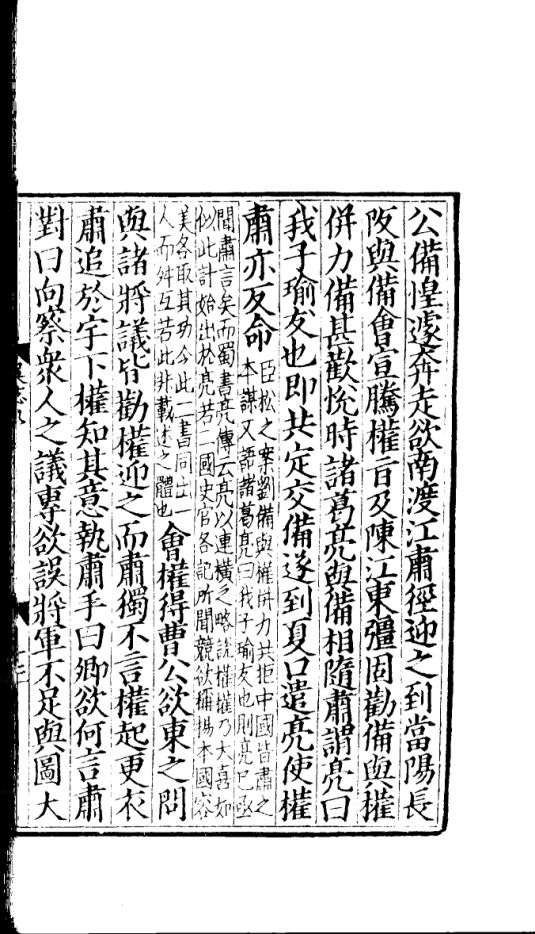 公備惶遽奔走欲南渡江肅徑迎之到當陽長
阪與備會宣騰權旨及陳江東彊固勸備與權
併力備甚歡悅時諸葛亮與備相隨肅謂亮曰
我子瑜友也即共定交備遂到夏口遣亮使權
肅亦反命
臣松之案劉備與權併力共拒中國皆肅之
本謀又語諸葛亮曰我子瑜友也則亮已亟
聞肅言矣而蜀書亮傳云亮以連橫之略說權權乃大喜如
似此計始出於亮若二國史官各記所聞競欲稱揚本國容
美各取其功今此二書同出一
人而舛互若此非載述之體也
會權得曹公欲東之問
與諸將議皆勸權迎之而肅獨不言權起更衣
肅追於宇下權知其意執肅手曰卿欲何言肅
對曰向察衆人之議專欲誤將軍不足與圖大